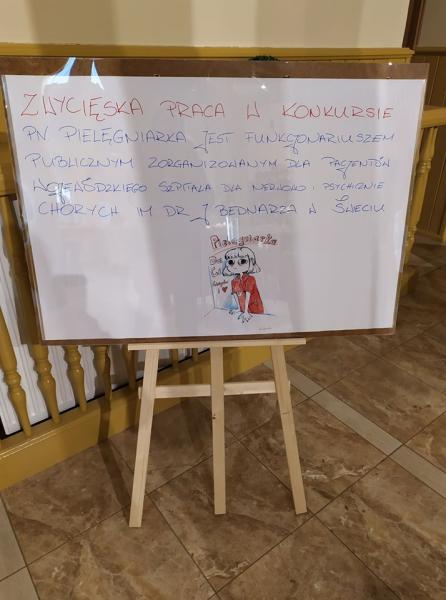 ZWYCIĘSKA PRACA W KONKURSIE
PN PIELĘGNIARKA JEST FUNKCJONARIUSZEM
PUBLICZNYM ZORGANIZOWANYM DLA PACJENTÓW
WOJEWÓDZKIEGO SZPITALA DLA NERWOWO I PSYCHICZNIE
CHORYCH IM DR J BEDNARZA W ŚWIECIU
Pielęgniarka